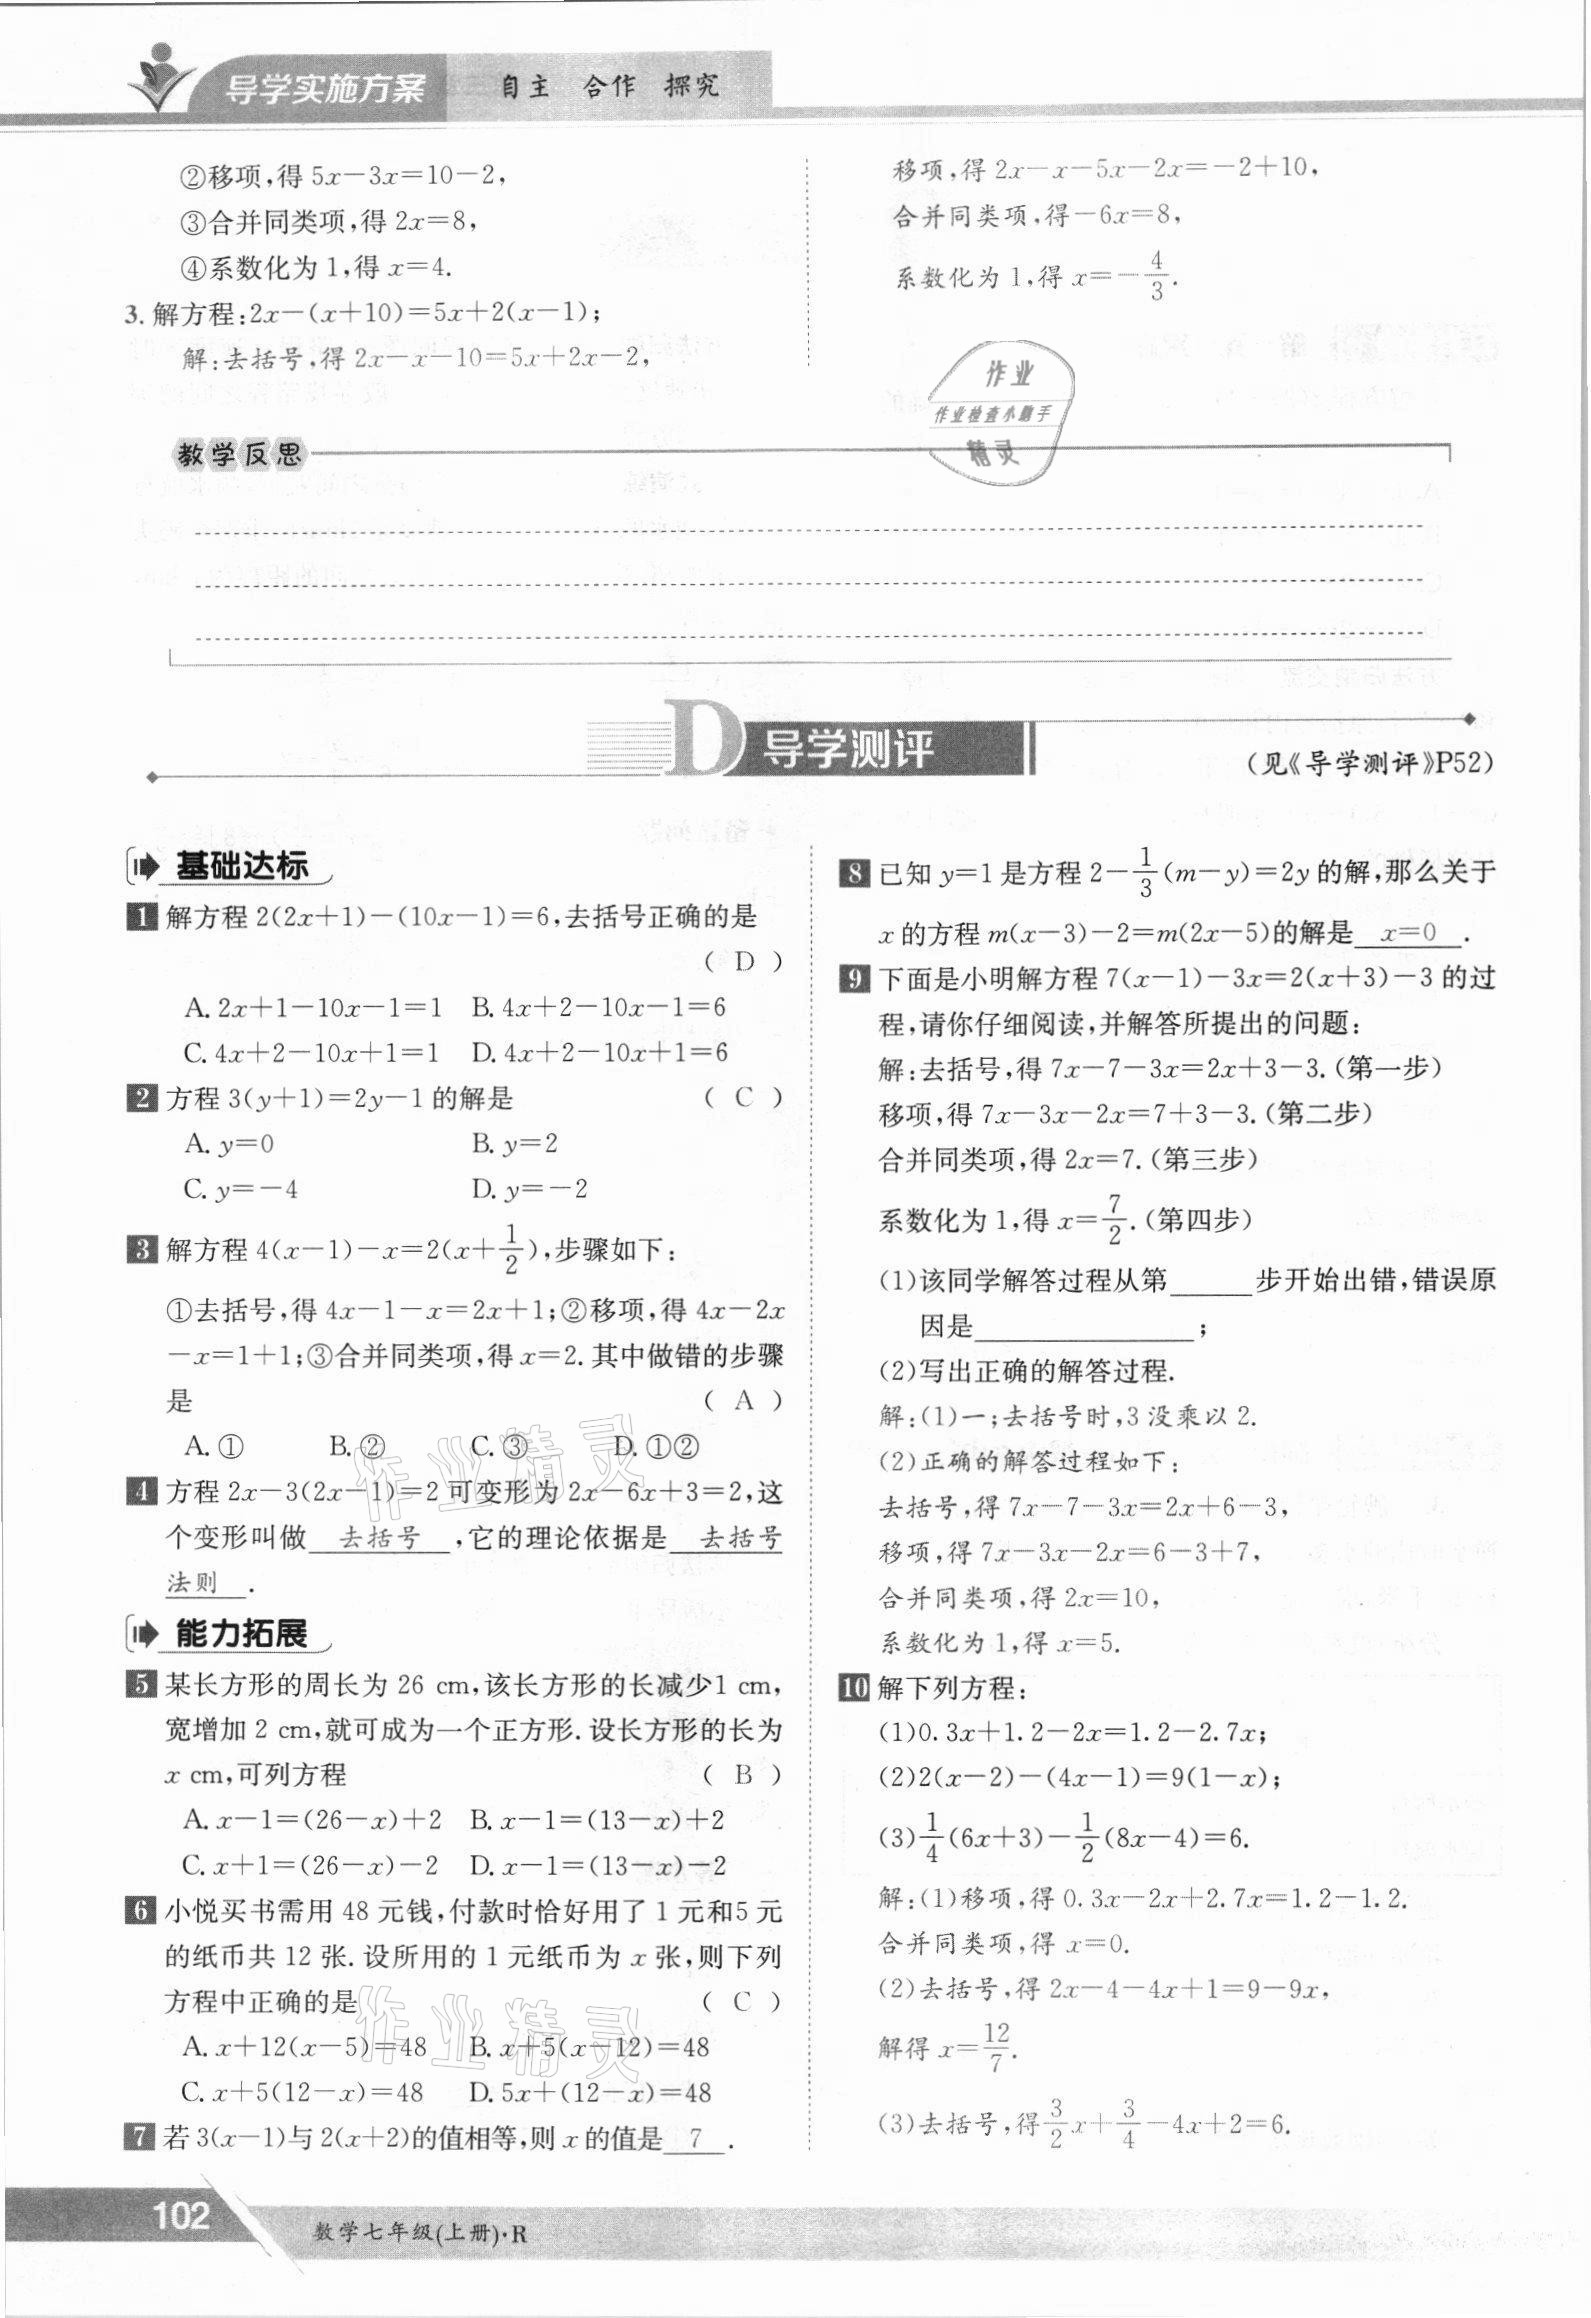 导学实施方案 自主 合作 探究
②移项,得 5x-3x=10-2,
③合并同类项,得 2x=8,
④系数化为 1,得 x=4.
3. 解方程:2x-(x+10)=5x+2(x-1);
解:去括号,得 2x-x-10=5x+2x-2,
移项,得 2x-x-5x-2x=-2+10,
合并同类项,得-6x=8,
系数化为 1,得 x=-4/3.
作业
作业检查小助手
精灵
教学反思
D 导学测评
(见《导学测评》P52)
基础达标
1 解方程 2(2x+1)-(10x-1)=6,去括号正确的是
( D )
A. 2x+1-10x-1=1 B. 4x+2-10x-1=6
C. 4x+2-10x+1=1 D. 4x+2-10x+1=6
2 方程 3(y+1)=2y-1 的解是 ( C )
A. y=0 B. y=2
C. y=-4 D. y=-2
3 解方程 4(x-1)-x=2(x+1/2),步骤如下:
①去括号,得 4x-1-x=2x+1;②移项,得 4x-2x
-x=1+1;③合并同类项,得 x=2. 其中做错的步骤
是 ( A )
A. ① B. ② C. ③ D. ①②
4 方程 2x-3(2x-1)=2 可变形为 2x-6x+3=2,这
个变形叫做 去括号 ,它的理论依据是 去括号
法则 .
能力拓展
5 某长方形的周长为 26 cm,该长方形的长减少1 cm,
宽增加 2 cm,就可成为一个正方形. 设长方形的长为
x cm,可列方程 ( B )
A. x-1=(26-x)+2 B. x-1=(13-x)+2
C. x+1=(26-x)-2 D. x-1=(13-x)-2
6 小悦买书需用 48 元钱,付款时恰好用了 1 元和5 元
的纸币共 12 张. 设所用的 1 元纸币为 x 张,则下列
方程中正确的是 ( C )
A. x+12(x-5)=48 B. x+5(x-12)=48
C. x+5(12-x)=48 D. 5x+(12-x)=48
7 若 3(x-1)与 2(x+2)的值相等,则 x 的值是 7 .
8 已知 y=1 是方程 2-1/3(m-y)=2y 的解,那么关于
x 的方程 m(x-3)-2=m(2x-5)的解是 x=0 .
9 下面是小明解方程 7(x-1)-3x=2(x+3)-3 的过
程,请你仔细阅读,并解答所提出的问题:
解:去括号,得 7x-7-3x=2x+3-3. (第一步)
移项,得 7x-3x-2x=7+3-3. (第二步)
合并同类项,得 2x=7. (第三步)
系数化为 1,得 x=7/2. (第四步)
(1)该同学解答过程从第______步开始出错,错误原
因是________________;
(2)写出正确的解答过程.
解:(1)一;去括号时,3 没乘以 2.
(2)正确的解答过程如下:
去括号,得 7x-7-3x=2x+6-3,
移项,得 7x-3x-2x=6-3+7,
合并同类项,得 2x=10,
系数化为 1,得 x=5.
10 解下列方程:
(1)0.3x+1.2-2x=1.2-2.7x;
(2)2(x-2)-(4x-1)=9(1-x);
(3)1/4(6x+3)-1/2(8x-4)=6.
解:(1)移项,得 0.3x-2x+2.7x=1.2-1.2.
合并同类项,得 x=0.
(2)去括号,得 2x-4-4x+1=9-9x,
解得 x=12/7.
(3)去括号,得3/2x+3/4-4x+2=6.
作业精灵
作业精灵
102 数学七年级(上册)·R